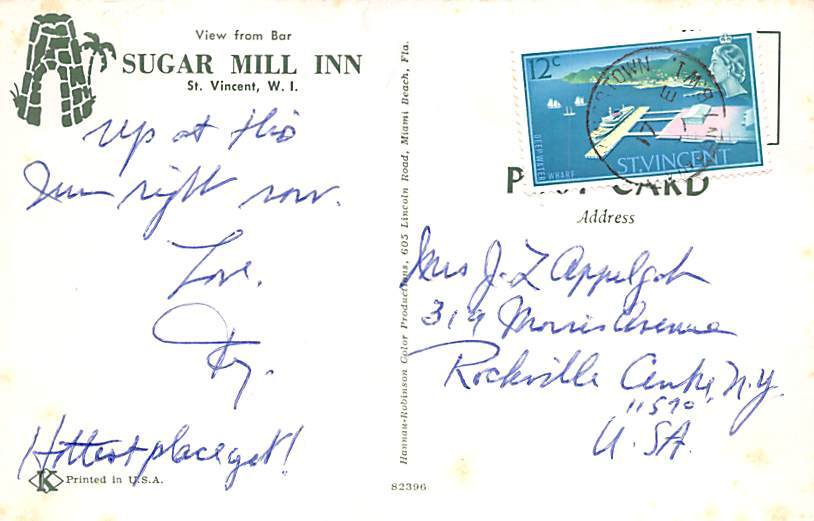 View from Bar
SUGAR MILL INN
St. Vincent, W. I.
up at this
Inn right now.
Love.
Hottest place yet!
K
Printed in U.S.A.
Hannau-Robinson Color Productions, 605 Lincoln Road, Miami Beach, Fla.
82396
12c
DEEP WATER WHARF
ST. VINCENT
POST CARD
Address
Mrs J. L Appelgat
319 Morris Avenue
Rockville Centre, N.Y.
11570
U.S.A.